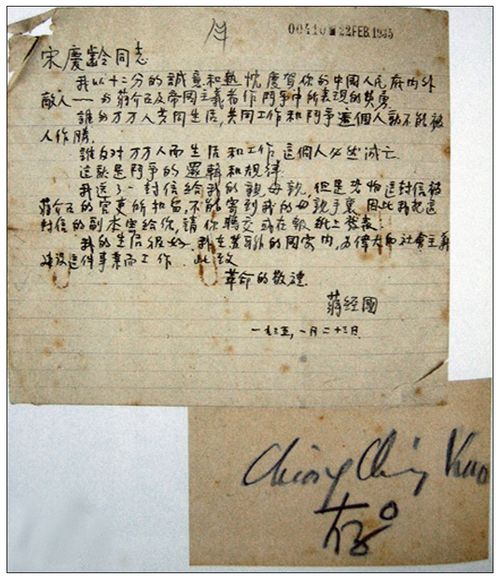 00410 22 FEB. 1935
宋慶齡同志
我以十二分的誠意和熱忱慶賀你的中國人民底內外
敵人——的蔣介石及帝國主義者作鬥爭中所表現的英勇
誰的万万人共同生活,共同工作和鬥爭這個人就不能被
人作勝.
誰反对万万人而生活和工作,這個人必然滅亡
這就是鬥爭的邏輯和規律
我送了一封信給我的親母親,但是恐怕這封信被
蔣介石的官吏所扣留,不能寄到我的母親手裏因此我把這
封信的副本寄給你,請你轉交或在報紙上發表
我的生活很好.我在蘇聯的國家内,为偉大的社會主義
建設這件事業而工作.此致
革命的敬禮
蔣经國
一九三五,一月二十三日
Chiang Ching Kuo